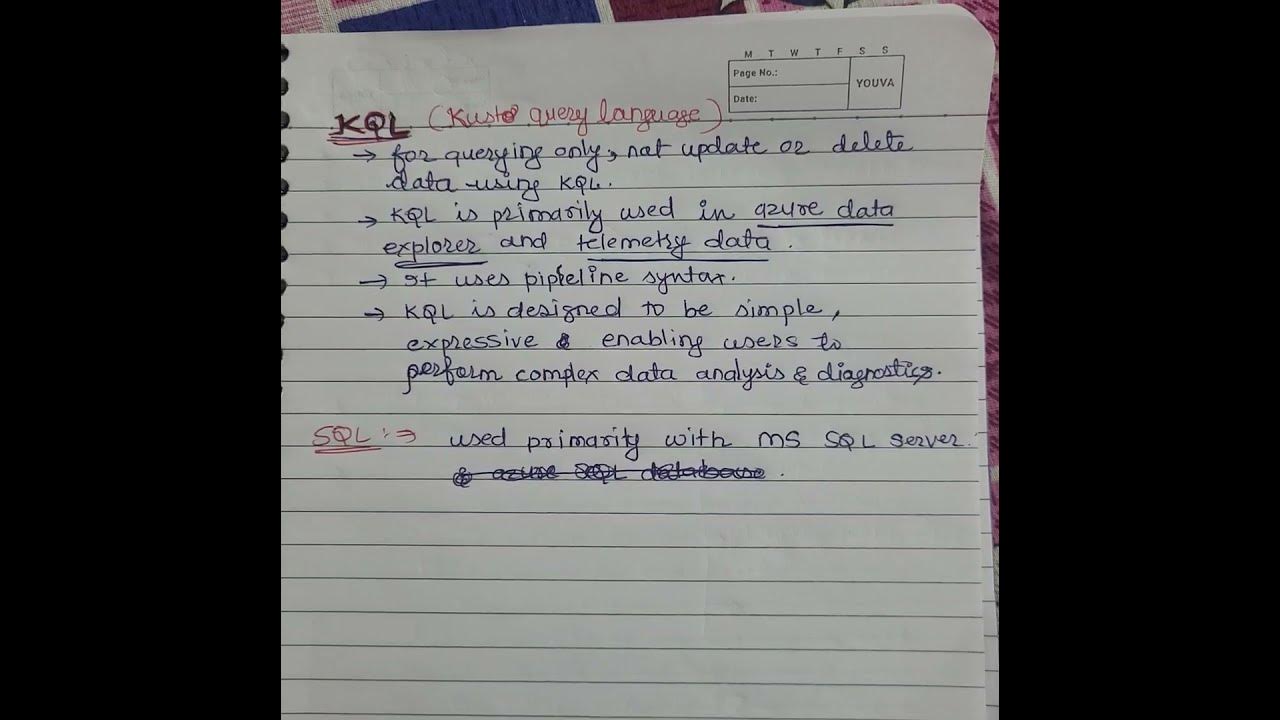 M T W T F S S
Page No.:
YOUVA
Date:
KQL (Kusto query language)
→ for querying only, not update or delete
data using KQL.
→ KQL is primarily used in azure data
explorer and telemetry data.
→ It uses pipeline syntax.
→ KQL is designed to be simple,
expressive & enabling users to
perform complex data analysis & diagnostics.
SQL :⇒ used primarity with MS SQL server.
& azure SQL database.